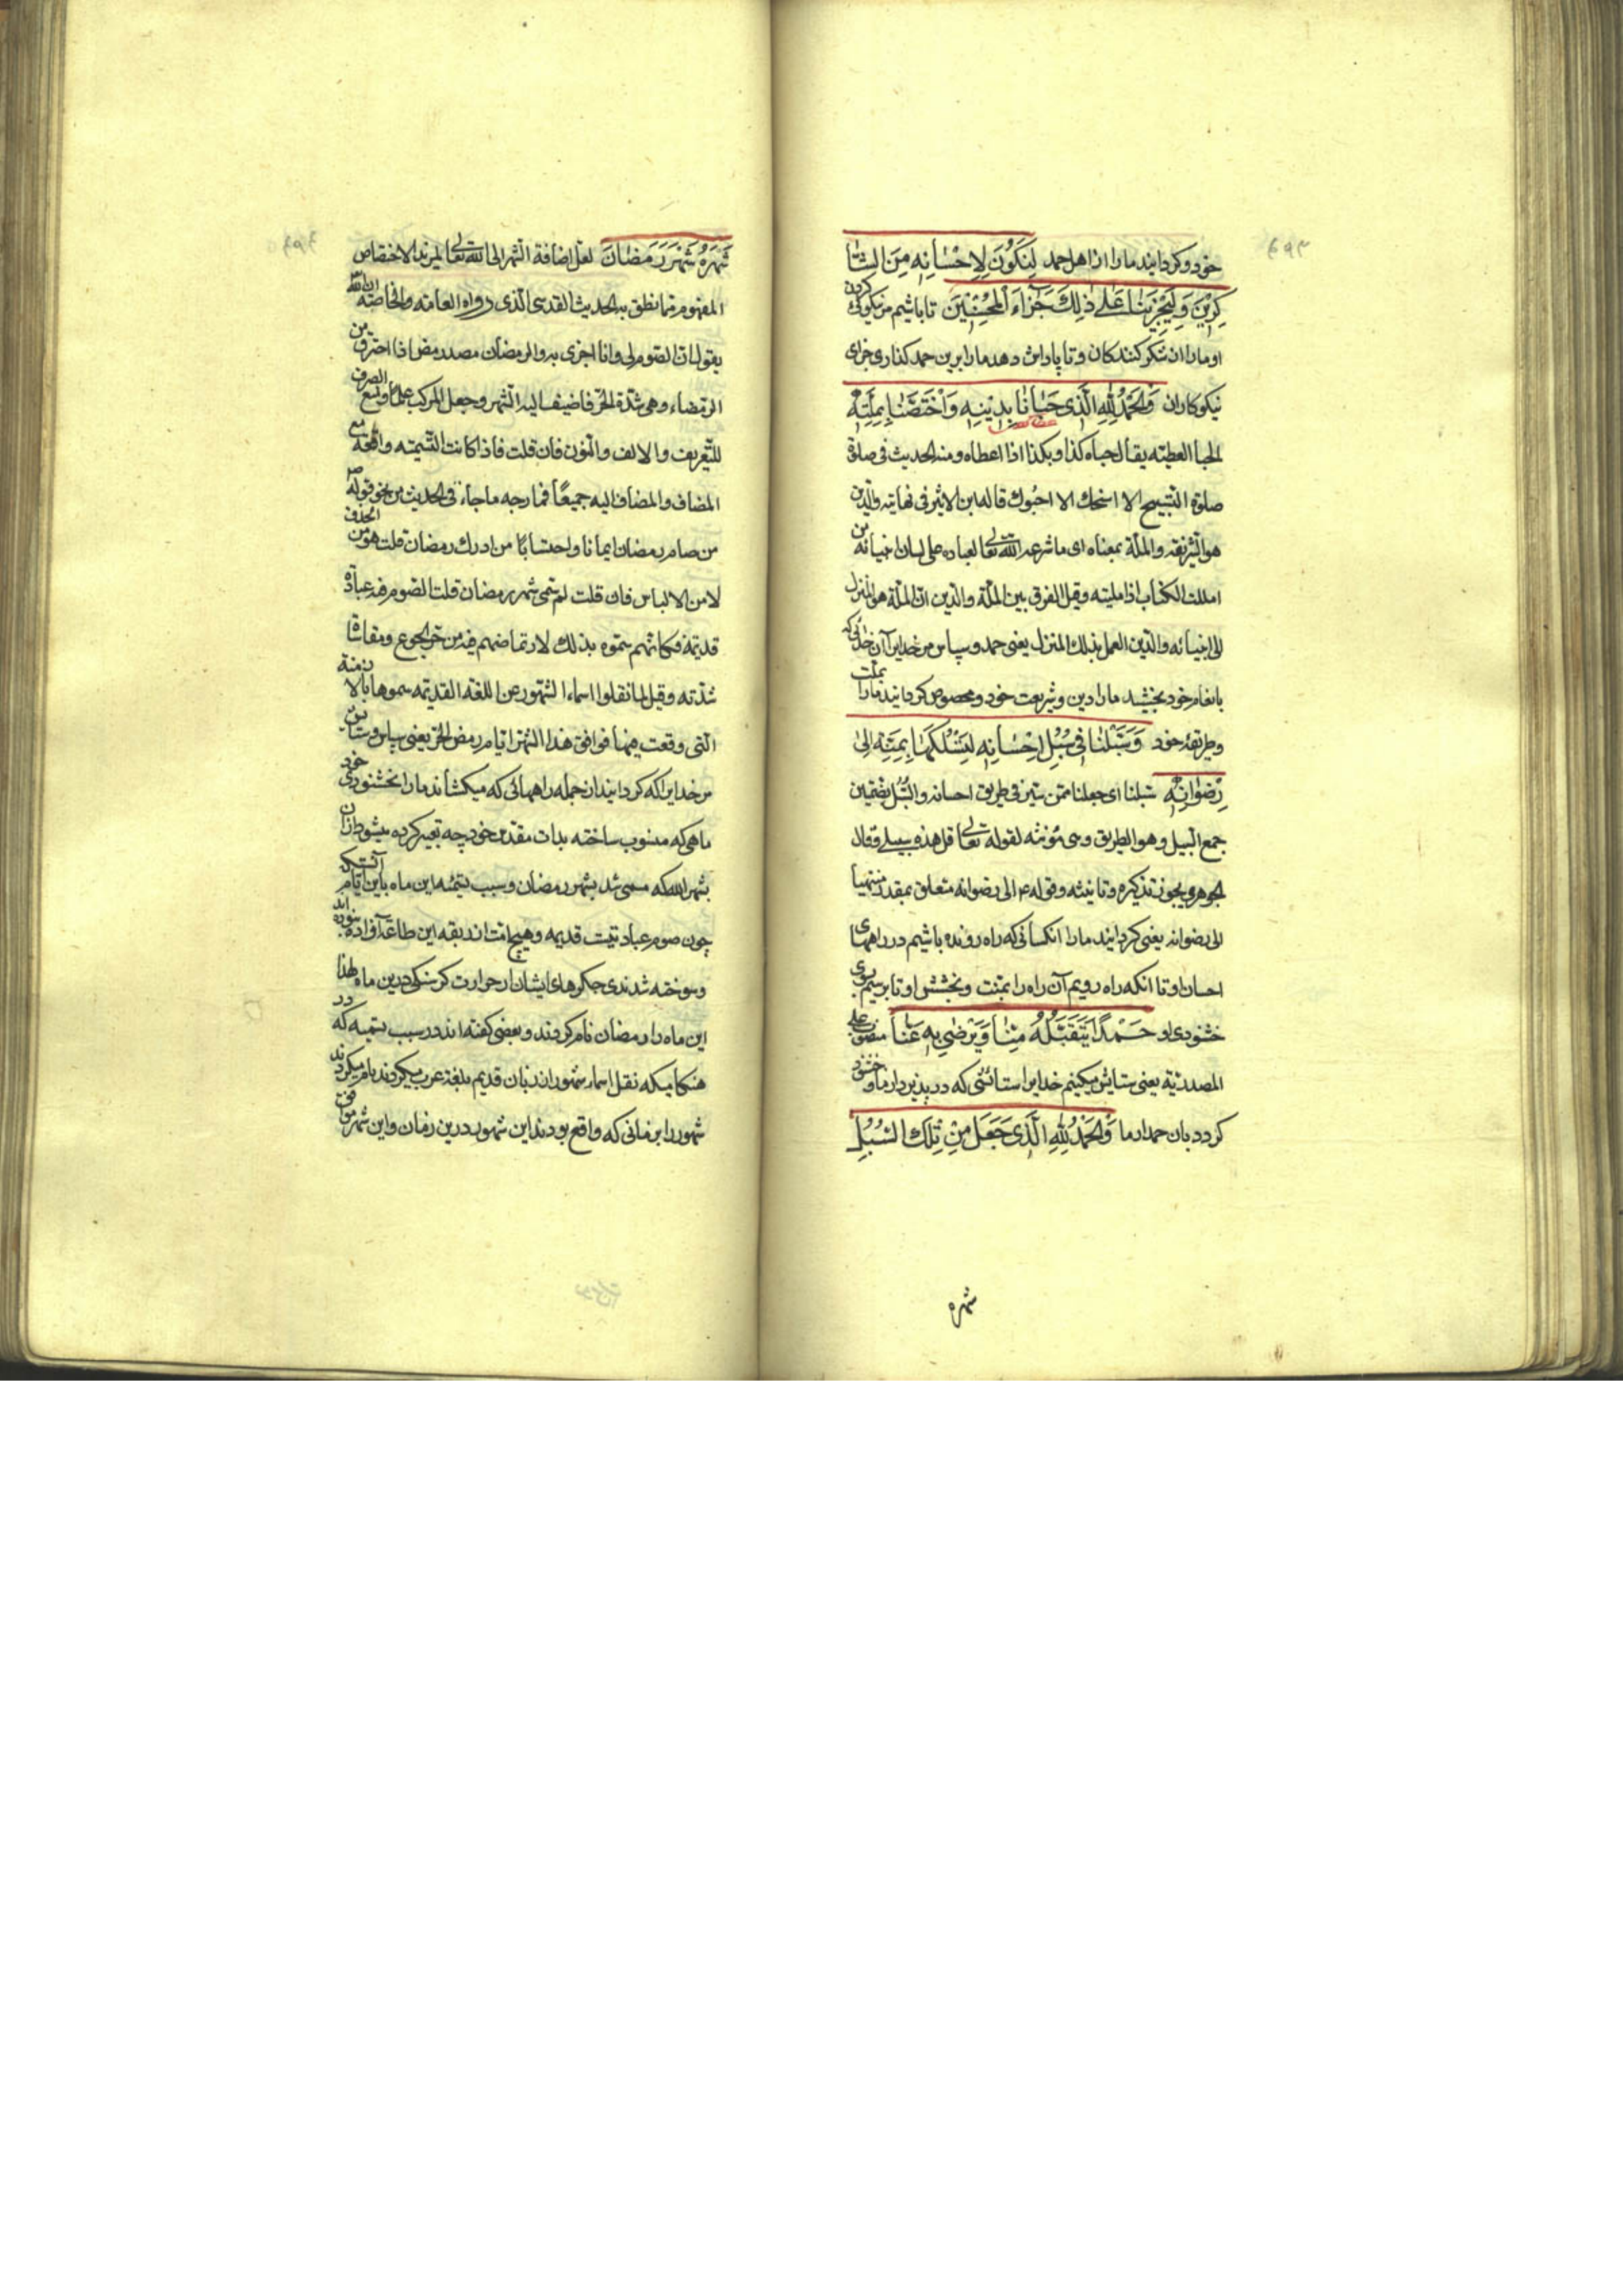 خود و کردانید ما را از اهل حمد لِنَکُونَ لِاِحْسَانِهِ مِنَ الشَّا
کِرِینَ وَ لِیَجْزِیَنَا عَلٰی ذٰلِکَ جَزَاءَ الْمُحْسِنِینَ تا باشیم مر نیکوئی کردن
او ما را از شکر کنندکان و تا پاداش دهد ما را برین حمد کذاری جزای
نیکوکاران وَ الْحَمْدُ لِلّٰهِ الَّذِی حَبَانَا بِدِینِهِ وَ اخْتَصَّنَا بِمِلَّتِهِ
الحبا العطیته یقال حباه کذا و بکذا اذا اعطاه و منه الحدیث فی صلاة
صلوة التسبیح الا امنحک الا احبوک قاله ابن الاثیر فی نهایته والدین
هو الشریعة والملة بمعناه ای ما شرعه الله تعالی لعباده علی لسان انبیائه من
امللت الکتاب اذا ملیته وقیل الفرق بین الملة والدین ان الملة هو المنزل
الی انبیائه والدین العمل بذلک المنزل یعنی حمد و سپاس مر خدایرا آن خدائی که
بانعام خود بخشید ما را دین و شریعت خود و مخصوص کردانید ما را بملت
و طریقهٔ خود وَ سَبَّلَنَا فِی سُبُلِ اِحْسَانِهِ لِنَسْلُکَهَا بِمَنِّهِ اِلٰی
رِضْوَانِهِ سبلنا ای جعلنا ممن یسیر فی طریق احسانه والسُّبُل بضمتین
جمع السبیل و هو الطریق و هی مؤنثه لقوله تعالی قل هذه سبیلی وقال
الجوهری یجوز تذکیره و تانیثه وقوله ع الی رضوانه متعلق بمقدر منتهیا
الی رضوانه یعنی کردانید ما را از کسانی که راه رونده باشیم در راههای
احسان او تا انکه راه رویم آن راه را بمنت و بخشش او تا برسیم بسوی
خشنودی او حَمْدًا یَتَقَبَّلُهُ مِنَّا وَ یَرْضٰی بِهِ عَنَّا منصوب علی
المصدریة یعنی ستایش میکنیم خدایرا ستائشی که در پذیرد از ما و خشنود
کردد بان حمد از ما وَ الْحَمْدُ لِلّٰهِ الَّذِی جَعَلَ مِنْ تِلْکَ السُّبُلِ
شهره
شَهْرَهُ شَهْرَ رَمَضَانَ لعل اضافة الشهر الی الله تعالی لمزید الاختصاص
المفهوم مما نطق به الحدیث القدسی الذی رواه العامه والخاصه ان الله
یقول ان الصوم لی وانا اجزی به والرمضان مصدر رمض اذا احترق من
الرمضاء وهی شدة الحر فاضیف الیه الشهر وجعل المرکب علما ومنع الصرف
للتعریف والالف والنون فان قلت فاذا کانت التسمیته واقعة مع
المضاف والمضاف الیه جمیعًا فما وجه ما جاء فی الحدیث من نحو قوله ص
من صام رمضان ایمانا واحتسابًا من ادرک رمضان قلت هو من الحذف
لا من الالباس فان قلت لم سمی شهر رمضان قلت الصوم فیه عبادة
قدیمة فکانهم سموه بذلک لارتماضهم فیه من حر الجوع ومقاساة
شدّته وقیل لما نقلوا اسماء الشهور عن اللغة القدیمه سموها بالازمنة
التی وقعت فیها فوافق هذا الشهر ایام رمض الحر یعنی سپاس و ستایش
مر خدایرا که کردانید از جمله راههائی که میکشاند ما را بخشنودی خود
ماهی که منسوب ساخته بذات مقدس خود چه تعبیر کرده میشود ازان
بشهر الله که مسمی شد بشهر رمضان و سبب تسمیهٔ این ماه باین نام آنستکه
چون صوم عبادتیست قدیمه و هیچ امت از ربقه این طاعت آزاد نبوده اند
و سوخته شدندی جکرهای ایشان از حرارت کرسنکی درین ماه لهذا
این ماه را رمضان نام کردند و بعضی کفته اند در سبب تسمیه که در
هنکامیکه نقل اسماء شهور از زبان قدیم بلغة عرب میکردند نام میکردند
شهور را بزمانی که واقع بودند این شهور درین زمان و این شهر موافق